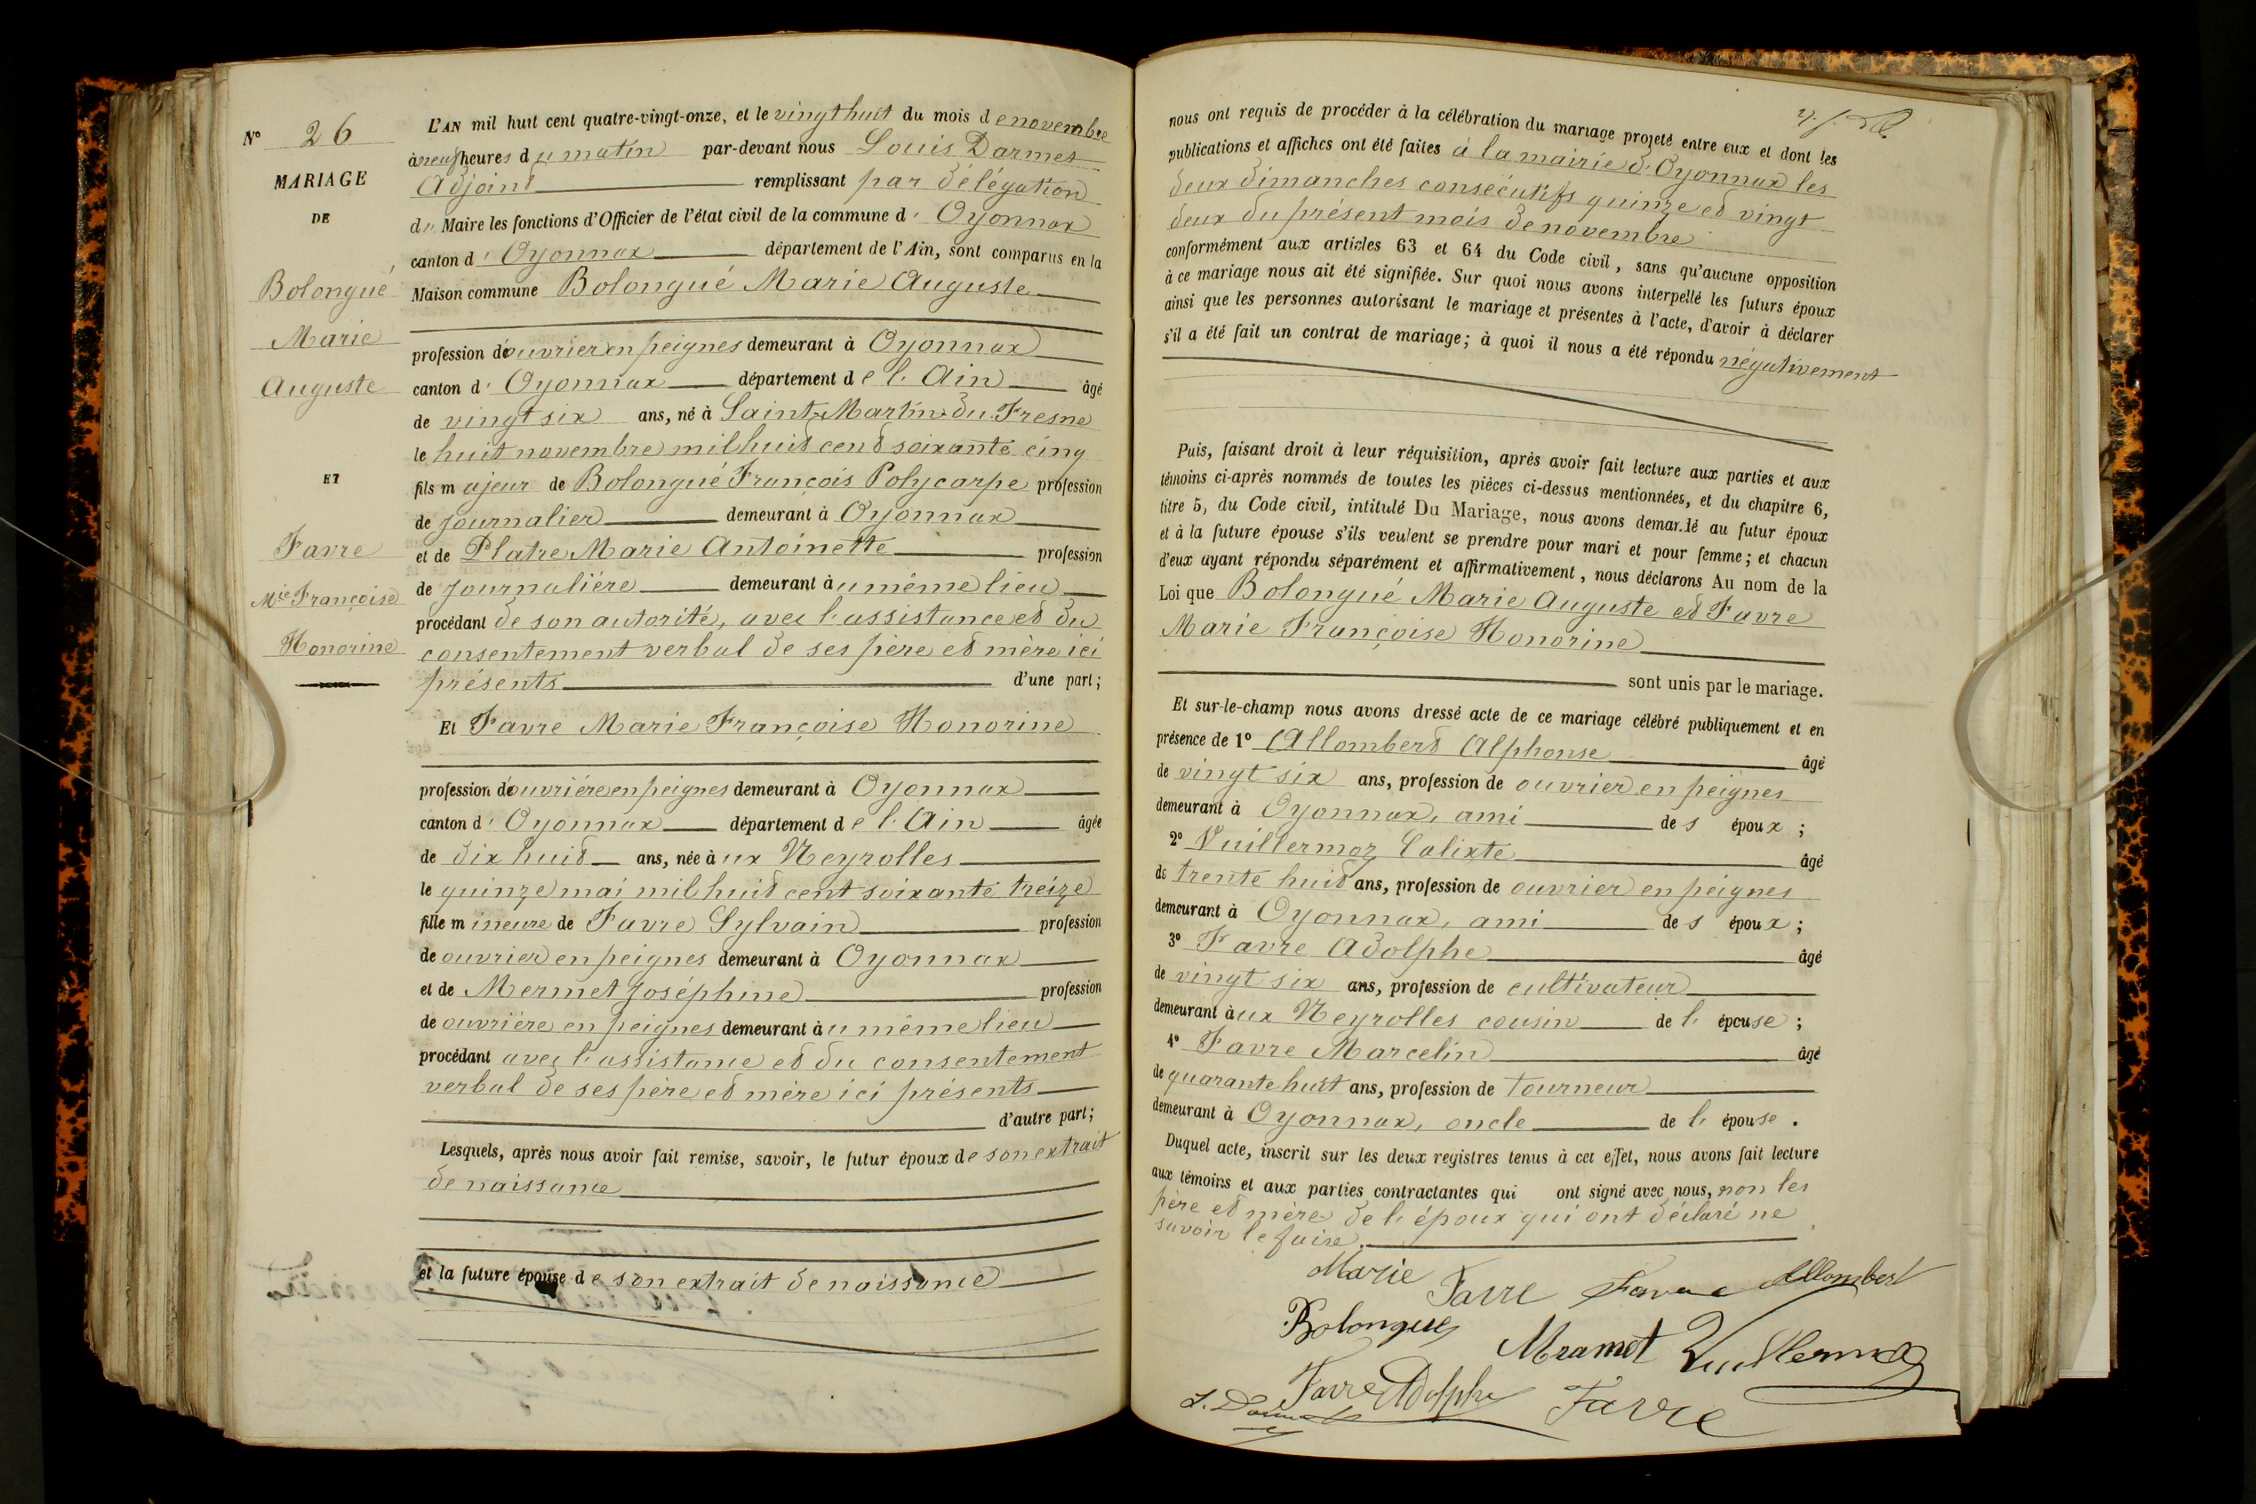 N° 26
MARIAGE
DE
Bolongué
Marie
Auguste
ET
Favre
Mie Françoise
Honorine
L'AN mil huit cent quatre-vingt-onze, et le vingt huit du mois de novembre
à neuf heures du matin par-devant nous Louis Darmet
Adjoint remplissant par délégation
du Maire les fonctions d'Officier de l'état civil de la commune d'Oyonnax
canton d'Oyonnax département de l'Ain, sont comparus en la
Maison commune Bolongué Marie Auguste
profession d'ouvrier en peignes demeurant à Oyonnax
canton d'Oyonnax département de l'Ain âgé
de vingt six ans, né à Saint-Martin-du-Fresne
le huit novembre mil huit cent soixante cinq
fils majeur de Bolongué François Polycarpe profession
de journalier demeurant à Oyonnax
et de Platre Marie Antoinette profession
de journalière demeurant au même lieu
procédant de son autorité, avec l'assistance et du
consentement verbal de ses père et mère ici
présents d'une part;
Et Favre Marie Françoise Honorine
profession d'ouvrière en peignes demeurant à Oyonnax
canton d'Oyonnax département de l'Ain âgée
de dix huit ans, née aux Neyrolles
le quinze mai mil huit cent soixante treize
fille mineure de Favre Sylvain profession
de ouvrier en peignes demeurant à Oyonnax
et de Mermet Joséphine profession
de ouvrière en peignes demeurant au même lieu
procédant avec l'assistance et du consentement
verbal de ses père et mère ici présents
d'autre part;
Lesquels, après nous avoir fait remise, savoir, le futur époux de son extrait
de naissance
et la future épouse de son extrait de naissance
nous ont requis de procéder à la célébration du mariage projeté entre eux et dont les
publications et affiches ont été faites à la mairie d'Oyonnax les
deux dimanches consécutifs quinze et vingt
deux du présent mois de novembre
conformément aux articles 63 et 64 du Code civil, sans qu'aucune opposition
à ce mariage nous ait été signifiée. Sur quoi nous avons interpellé les futurs époux
ainsi que les personnes autorisant le mariage et présentes à l'acte, d'avoir à déclarer
s'il a été fait un contrat de mariage; à quoi il nous a été répondu négativement
Puis, faisant droit à leur réquisition, après avoir fait lecture aux parties et aux
témoins ci-après nommés de toutes les pièces ci-dessus mentionnées, et du chapitre 6,
titre 5, du Code civil, intitulé Du Mariage, nous avons demandé au futur époux
et à la future épouse s'ils veulent se prendre pour mari et pour femme; et chacun
d'eux ayant répondu séparément et affirmativement, nous déclarons Au nom de la
Loi que Bolongué Marie Auguste et Favre
Marie Françoise Honorine
sont unis par le mariage.
Et sur-le-champ nous avons dressé acte de ce mariage célébré publiquement et en
présence de 1° Allombert Alphonse âgé
de vingt six ans, profession de ouvrier en peignes
demeurant à Oyonnax, ami des époux;
2° Vuillermoz Calixte âgé
de trente huit ans, profession de ouvrier en peignes
demeurant à Oyonnax, ami des époux;
3° Favre Adolphe âgé
de vingt six ans, profession de cultivateur
demeurant aux Neyrolles cousin de l'épouse;
4° Favre Marcelin âgé
de quarante huit ans, profession de tourneur
demeurant à Oyonnax, oncle de l'épouse.
Duquel acte, inscrit sur les deux registres tenus à cet effet, nous avons fait lecture
aux témoins et aux parties contractantes qui ont signé avec nous, non les
père et mère de l'époux qui ont déclaré ne
savoir le faire.
Marie Favre Favre Allombert
Bolongué Mramet Vuillermoz
Favre Adolphe Favre
L. Darmet